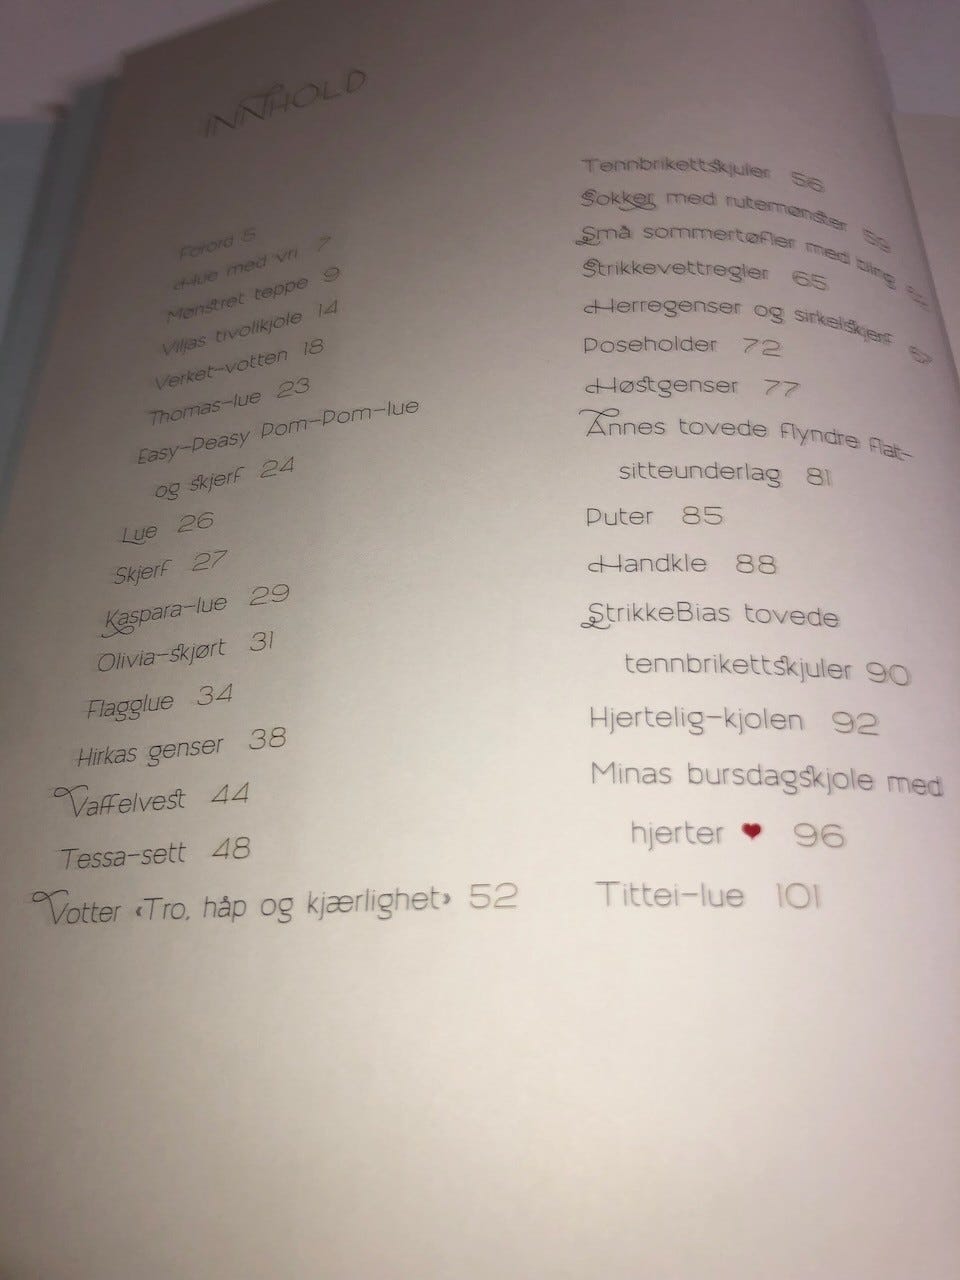 INNHOLD
Forord 5
Hue med vri 7
Mønstret teppe 9
Viljas tivolikjole 14
Verket-votten 18
Thomas-lue 23
Easy-Peasy Pom-Pom-lue
og skjerf 24
Lue 26
Skjerf 27
Kaspara-lue 29
Olivia-skjørt 31
Flagglue 34
Hirkas genser 38
Vaffelvest 44
Tessa-sett 48
Votter «Tro, håp og kjærlighet» 52
Tennbrikettskjuler 56
Sokker med rutemønster 59
Små sommertøfler med bling
Strikkevettregler 65
Herregenser og sirkelskjerf 67
Poseholder 72
Høstgenser 77
Annes tovede flyndre flat-
sitteunderlag 81
Puter 85
Handkle 88
StrikkeBias tovede
tennbrikettskjuler 90
Hjertelig-kjolen 92
Minas bursdagskjole med
hjerter ♥ 96
Tittei-lue 101